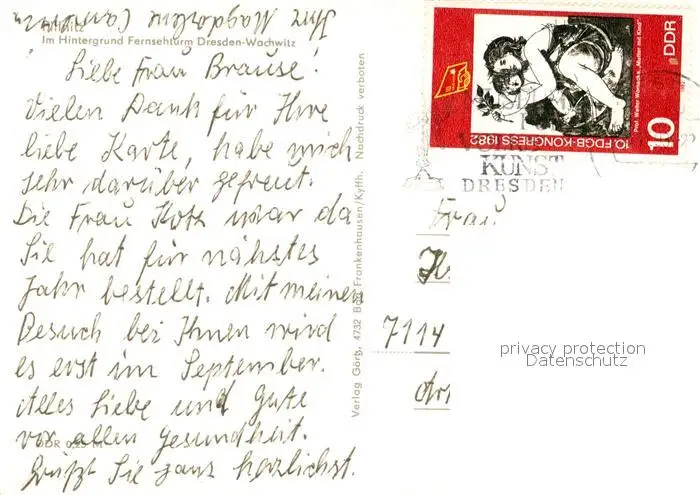 Pillnitz
Im Hintergrund Fernsehturm Dresden-Wachwitz
Liebe Frau Brause!
Vielen Dank für Ihre
liebe Karte, habe mich
sehr darüber gefreut.
Die Frau Kotz war da
Sie hat für nächstes
Jahr bestellt. Mit meinen
Besuch bei Ihnen wird
es erst im September.
Alles Liebe und Gute
vor allen Gesundheit.
Grüßt Sie ganz herzlichst.
Ihre Magdalena
DDR 0,25 M
Verlag Görtz, 4732 Bad Frankenhausen/Kyffh. Nachdruck verboten
10. FDGB-KONGRESS 1982
Prof. Walter Womacka, „Mutter mit Kind"
DDR
10
KUNST
DRESDEN
Frau
7114
privacy protection
Datenschutz